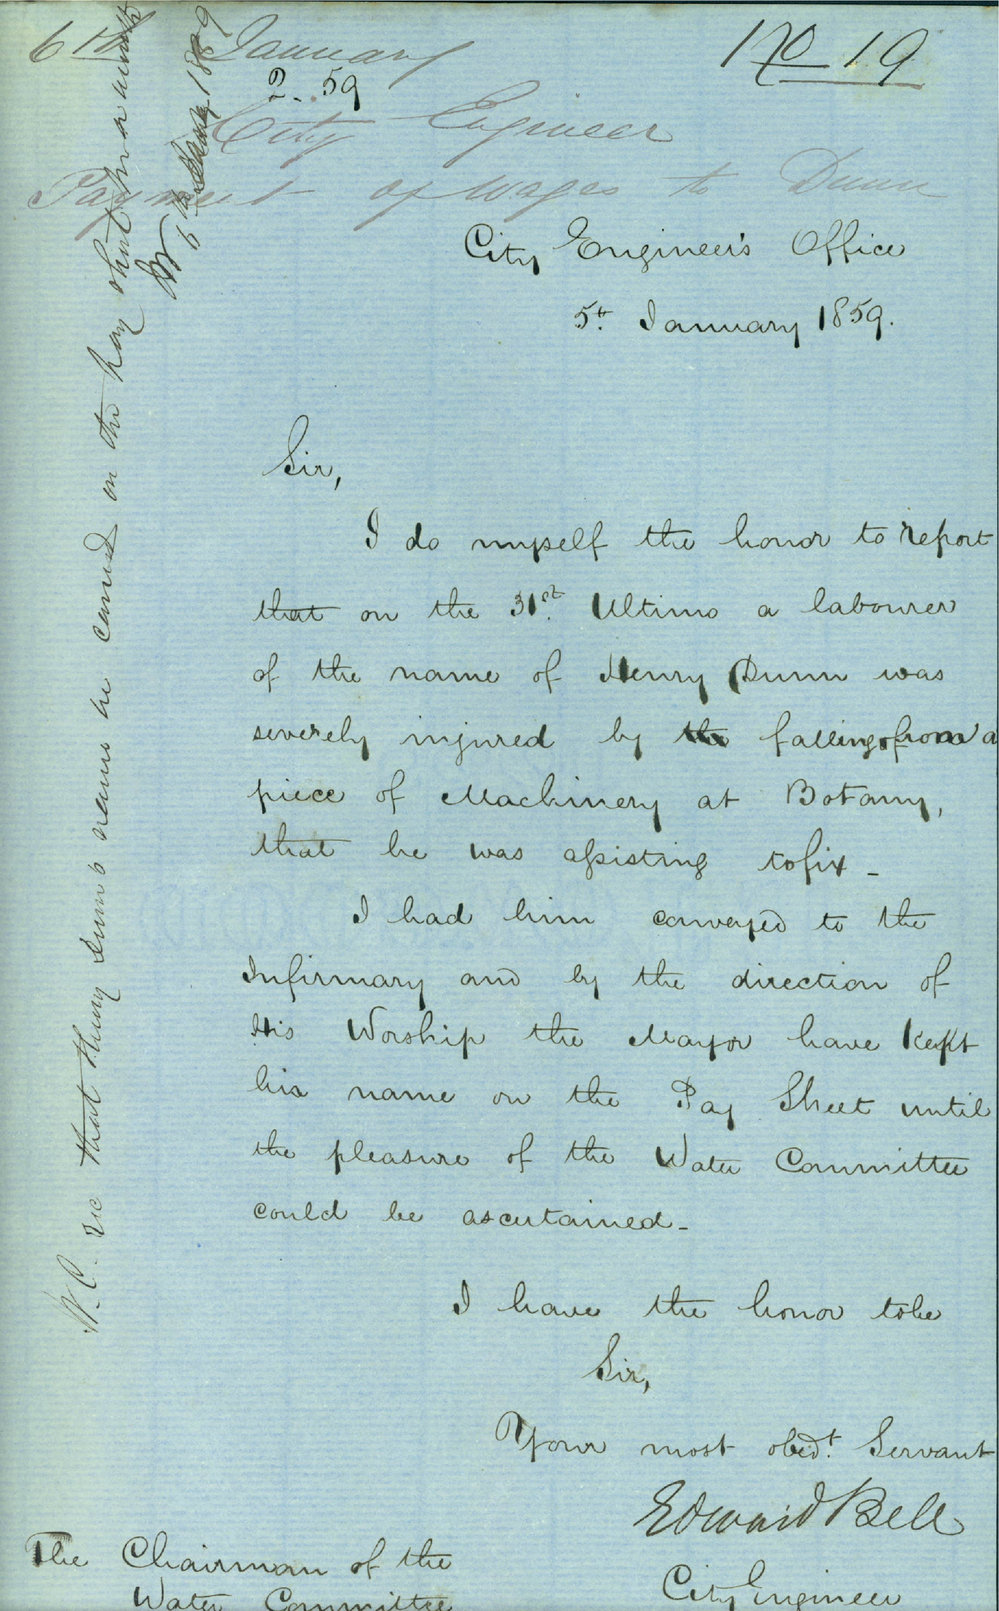 6th January
No 19
2. 59
City Engineer
Payment of Wages to Dunn
City Engineer's Office
5th January 1859.
Sir,
I do myself the honor to report
that on the 31st Ultimo a labourer
of the name of Henry Dunn was
severely injured by the falling from a
piece of Machinery at Botany,
that he was assisting to fix -
I had him conveyed to the
Infirmary and by the direction of
His Worship the Mayor have kept
his name on the Pay Sheet until
the pleasure of the Water Committee
could be ascertained -
I have the honor to be
Sir,
Your most obedt. Servant
Edward Bell
City Engineer
The Chairman of the
Water Committee
W.C. rec that Henry Dunn's name be carried on the pay sheet for a month
6th 1859